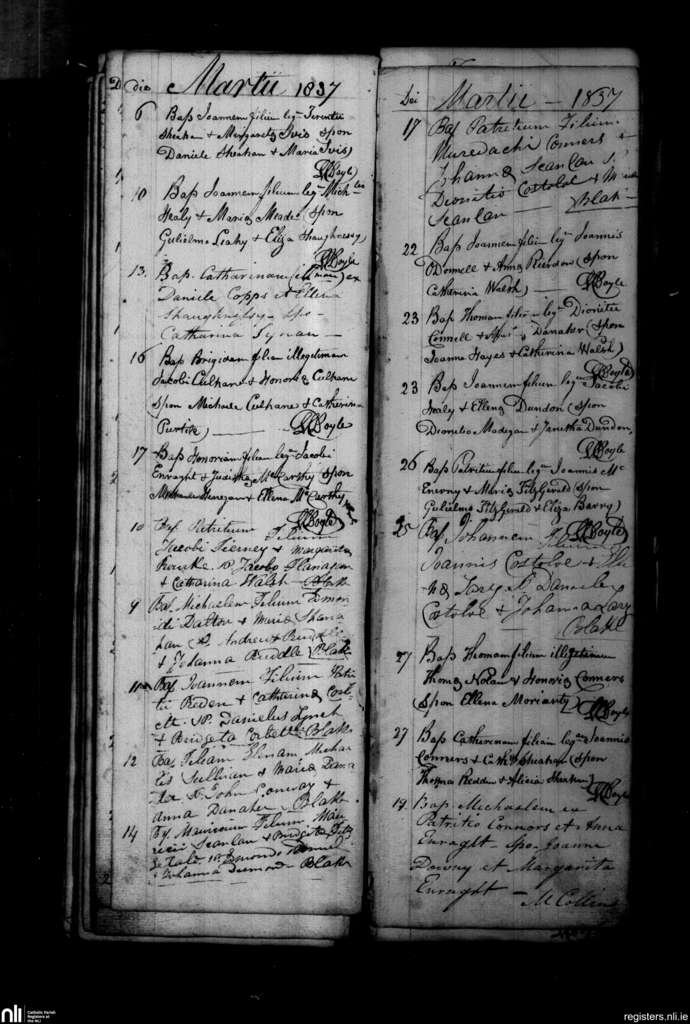 D die Martii 1837
6 Bap Joannem filium leg. Terentii
Sheehan & Margarita Ivis spon
Daniele Sheahan & Maria Ivis)
Boyle
10 Bap Joannem filium leg. Mich
Healy & Maria Meade (Spon
Gulielmo Leahy & Eliza Shaughnessy)
Boyle
13. Bap. Catharinam ex
Daniele Copps et Ellena
Shaughnessy - Spo-
Catharina
16 Bap Brigidam filiam illegitimam
Jacobi Culhane & Honora Culhane
(Spon Michaele Culhane & Catherina
Purtill) Boyle
17 Bap Honoriam filiam leg. Jacobi
Enraght & Juditha McCarthy spon
Finnegan & Ellena McCarthy
Boyle
10 Bap Patritium Filium
Jacobi Tierney & Margarita
Rourke Sp Jacobo Flanagan
& Catharina Walsh Blake
9 Bap Michaelem Filium Edmon
di Dalton & Maria Shana
han Sp Andrew Ruddle
& Johanna Ruddle Blake
11 Bap Joannem Filium Patri
tii Reden & Catharina Corb
ett Sp. Danielus Lynch
& Bridgeta Corbett Blake
12 Bap Filiam Honoram Michae
lis Sullivan & Maria Dana
her Sp John Conway &
anna Danaher Blake
14 Bap Mauricium Filium Mau
ricii Scanlan & Bridgita Fitz
Gerald Sp Edmondo
& Johanna Desmond Blake
Dei Martii - 1837
17 Bap Patritium Filium
Muredachi Conners
Johanna Scanlan S
Dionitio Costoloe & M
Scanlan Blake
22 Bap Joannem filium leg. Joannis
ODonnell & Anna Riordan (spon
Catherina Walsh) Boyle
23 Bap Thomam filium leg. Dionitii
Connell & Danaher (spon
Joanne Hayes & Catherina Walsh)
Boyle
23 Bap Joannem filium leg. Jacobi
Healy & Ellena Dundon (spon
Dionitio Madigan & Janetha Dundon,
Boyle
26 Bap Patritium filium leg. Joannis Mc
Enerny & Maria FitzGerald (spon
Gulielmo FitzGerald & Eliza Barry)
Boyle
25 Bap Johannem Filium
Joannis Costoloe &
Lacy Sp Daniele
Costoloe & Johanna Lacy
Blake
27 Bap Thomam filium illegitimum
Thoma Nolan & Honora Conners
Spon Ellena Moriarty) Boyle
27 Bap Catherinam filiam leg. Joannis
Conners & Cath. Sheahan (spon
Thoma Reddan & Alicia Sheahan)
Boyle
19 Bap Michaelem ex
Patritio Connors et Anna
Enraght - Spo- Joanne
Downy et Margarita
Enraght - M Collins
nli Catholic Parish
Registers at
the NLI
registers.nli.ie